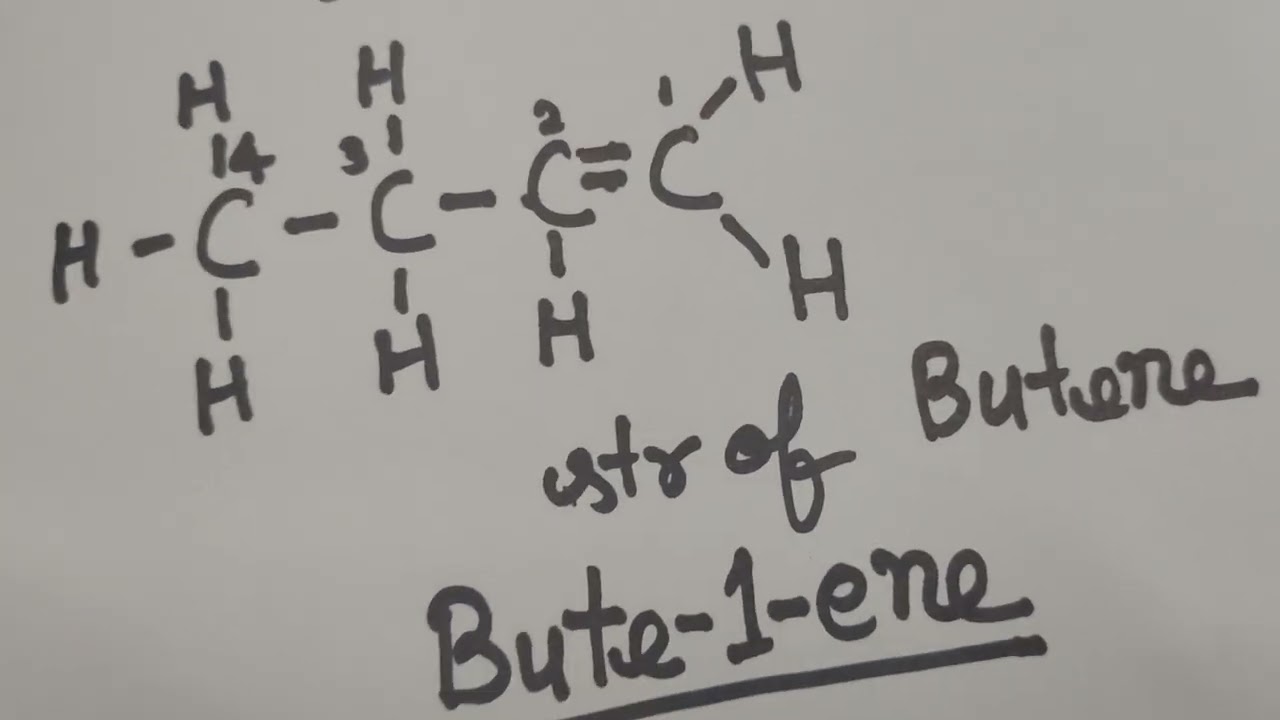 H H H
H 4 3 2 1
H - C - C - C = C
H H H H
str of Butene
Bute-1-ene